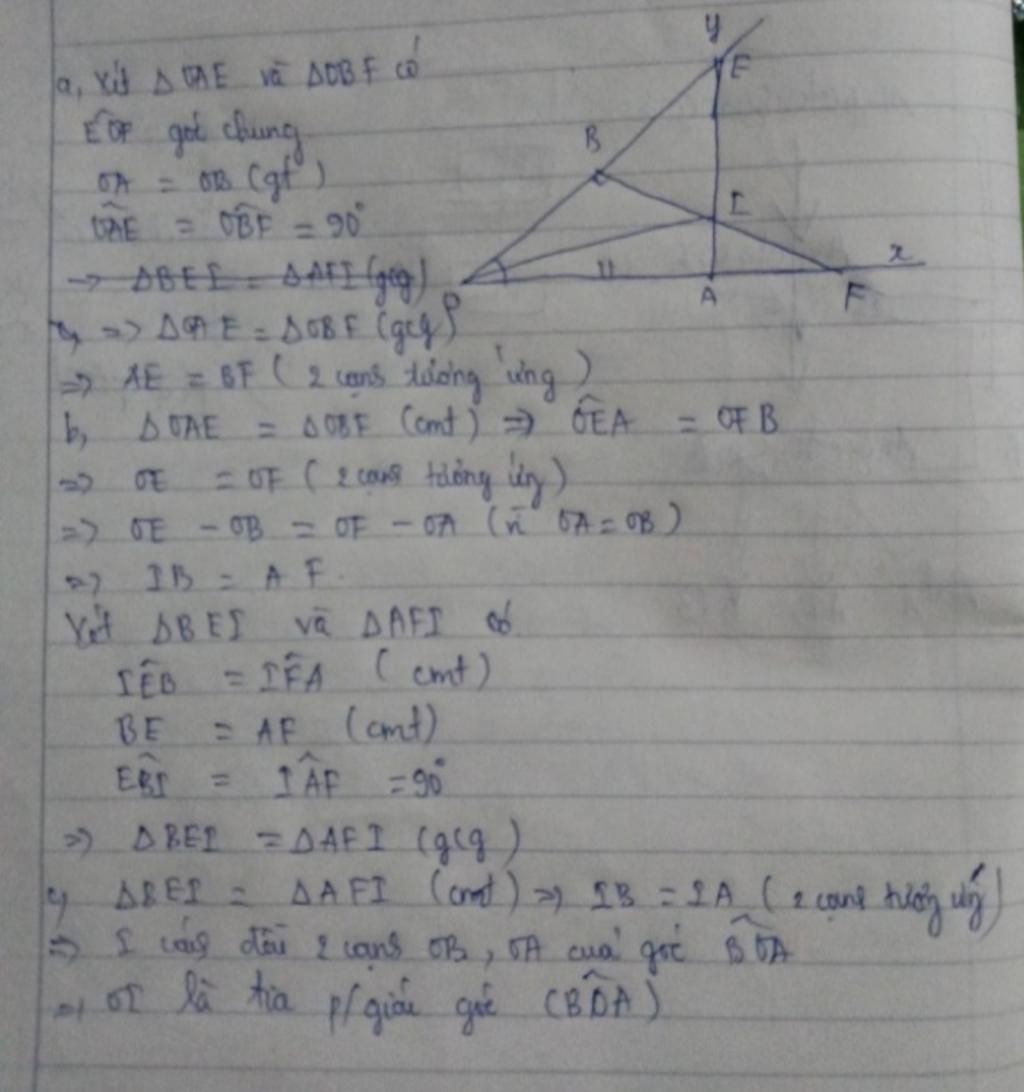 a, Xét ΔOAE và ΔOBF có
EÔF góc chung
OA = OB (gt)
OÂE = OB̂F = 90°
-> ΔBEI = ΔAFI (gcg)
=> ΔOAE = ΔOBF (gcg)
=> AE = BF ( 2 cạnh tương ứng )
b, ΔOAE = ΔOBF (cmt) => OÊA = OFB
=> OE = OF ( 2 cạnh tương ứng )
=> OE - OB = OF - OA (vì OA = OB )
=> IB = AF.
Xét ΔBEI và ΔAFI có
IÊB = IF̂A ( cmt )
BE = AF (cmt)
EB̂I = IÂF = 90°
=> ΔBEI = ΔAFI (gcg )
c, ΔBEI = ΔAFI (cmt) => IB = IA ( 2 cạnh tương ứng )
=> I cách đều 2 cạnh OB, OA của góc BÔA
=> OI là tia p/giác góc (BÔA)
y
E
B
I
x
O
A
F